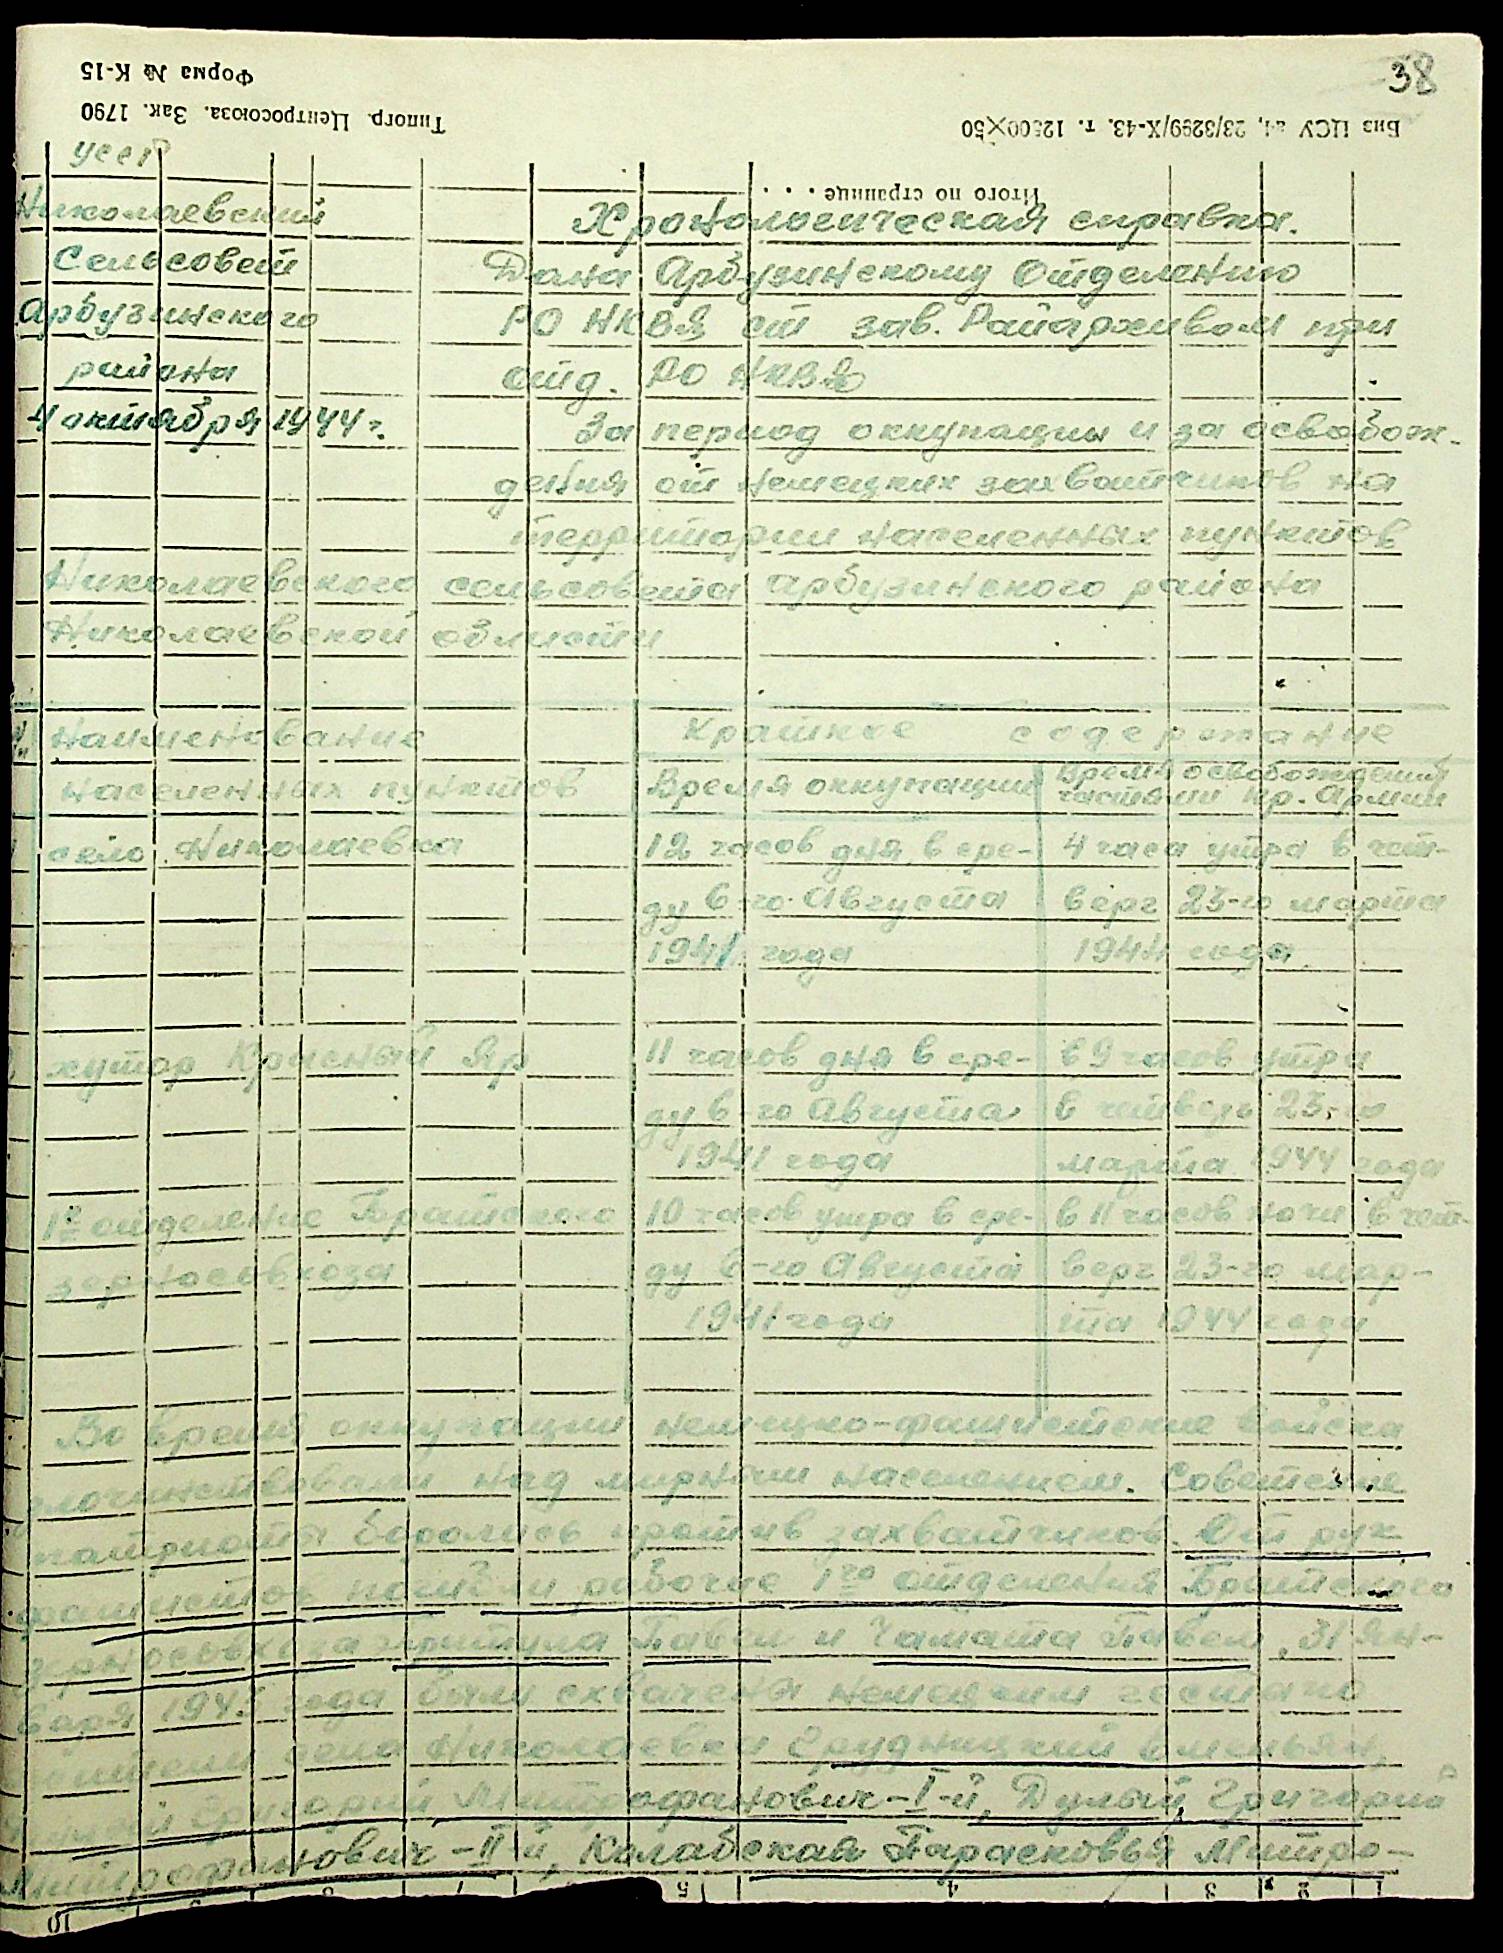 38
Форма № К-15
Типогр. Центросоюза. Зак. 1790
Биз ЦСУ 23/3299/X-43. т. 12500×50
Итого по странице . . . .
УССР
Николаевский
Сельсовет
Арбузинского
района
4 октября 1944 г.
Хронологическая справка.
Дана Арбузинскому Отделению
РО НКВД от зав. Райархивом при
отд. РО НКВД
За период оккупации и за освобож-
дения от немецких захватчиков на
территории населенных пунктов
Николаевского сельсовета Арбузинского района
Николаевской области
Наименование
населенных пунктов
Краткое содержание
Время оккупации
Время освобождения
частями Кр. Армии
село Николаевка
12 часов дня в сре-
ду 6-го Августа
1941 года
4 часа утра в чет-
верг 23-го марта
1944 года
хутор Красный Яр
11 часов дня в сре-
ду 6-го Августа
1941 года
в 9 часов утра
в четверг 23-го
марта 1944 года
1е отделение Братского
зерносовхоза
10 часов утра в сре-
ду 6-го Августа
1941 года
в 11 часов ночи в чет-
верг 23-го мар-
та 1944 года
Во время оккупации немецко-фашистские войска
злочинствовали над мирным населением. Советские
патриоты боролись против захватчиков. От рук
фашистов погибли рабочие 1го отделения Братского
зерносовхоза Павел и Чамата Павел, 31 Ян-
варя 194 года были схвачены немецким гестапо
жители села Николаевки Грудницкий
Григорий Митрофанович-I-й, Дулый Григорий
Митрофанович-II й, Колабская Парасковья Митро-
10
5 4 3 2 1